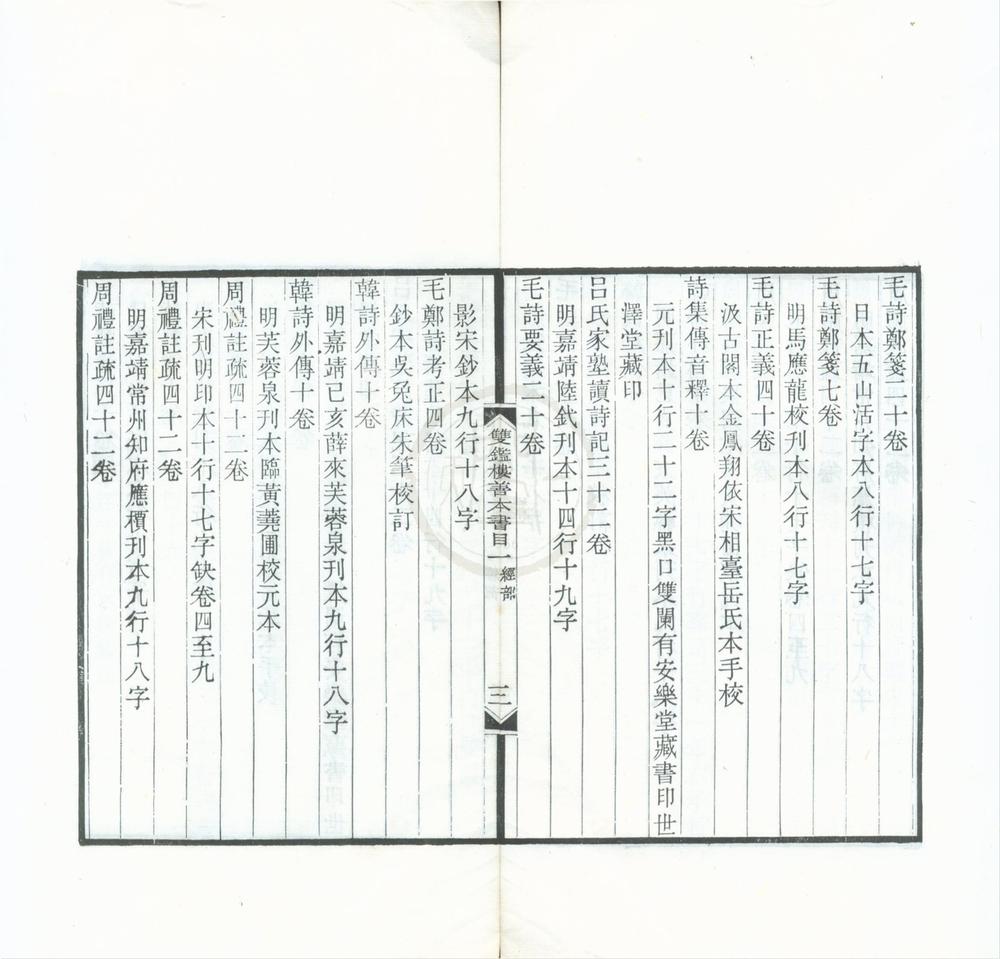 毛詩鄭箋二十卷
日本五山活字本八行十七字
毛詩鄭箋七卷
明馬應龍校刊本八行十七字
毛詩正義四十卷
汲古閣本金鳳翔依宋相臺岳氏本手校
詩集傳音釋十卷
元刊本十行二十二字黑口雙闌有安樂堂藏書印世
澤堂藏印
呂氏家塾讀詩記三十二卷
明嘉靖陸釴刊本十四行十九字
毛詩要義二十卷
雙鑑樓善本書目一 經部 三
影宋鈔本九行十八字
毛鄭詩考正四卷
鈔本吳兔床朱筆校訂
韓詩外傳十卷
明嘉靖己亥薛來芙蓉泉刊本九行十八字
韓詩外傳十卷
明芙蓉泉刊本臨黃蕘圃校元本
周禮註疏四十二卷
宋刊明印本十行十七字缺卷四至九
周禮註疏四十二卷
明嘉靖常州知府應檟刊本九行十八字
周禮註疏四十二卷